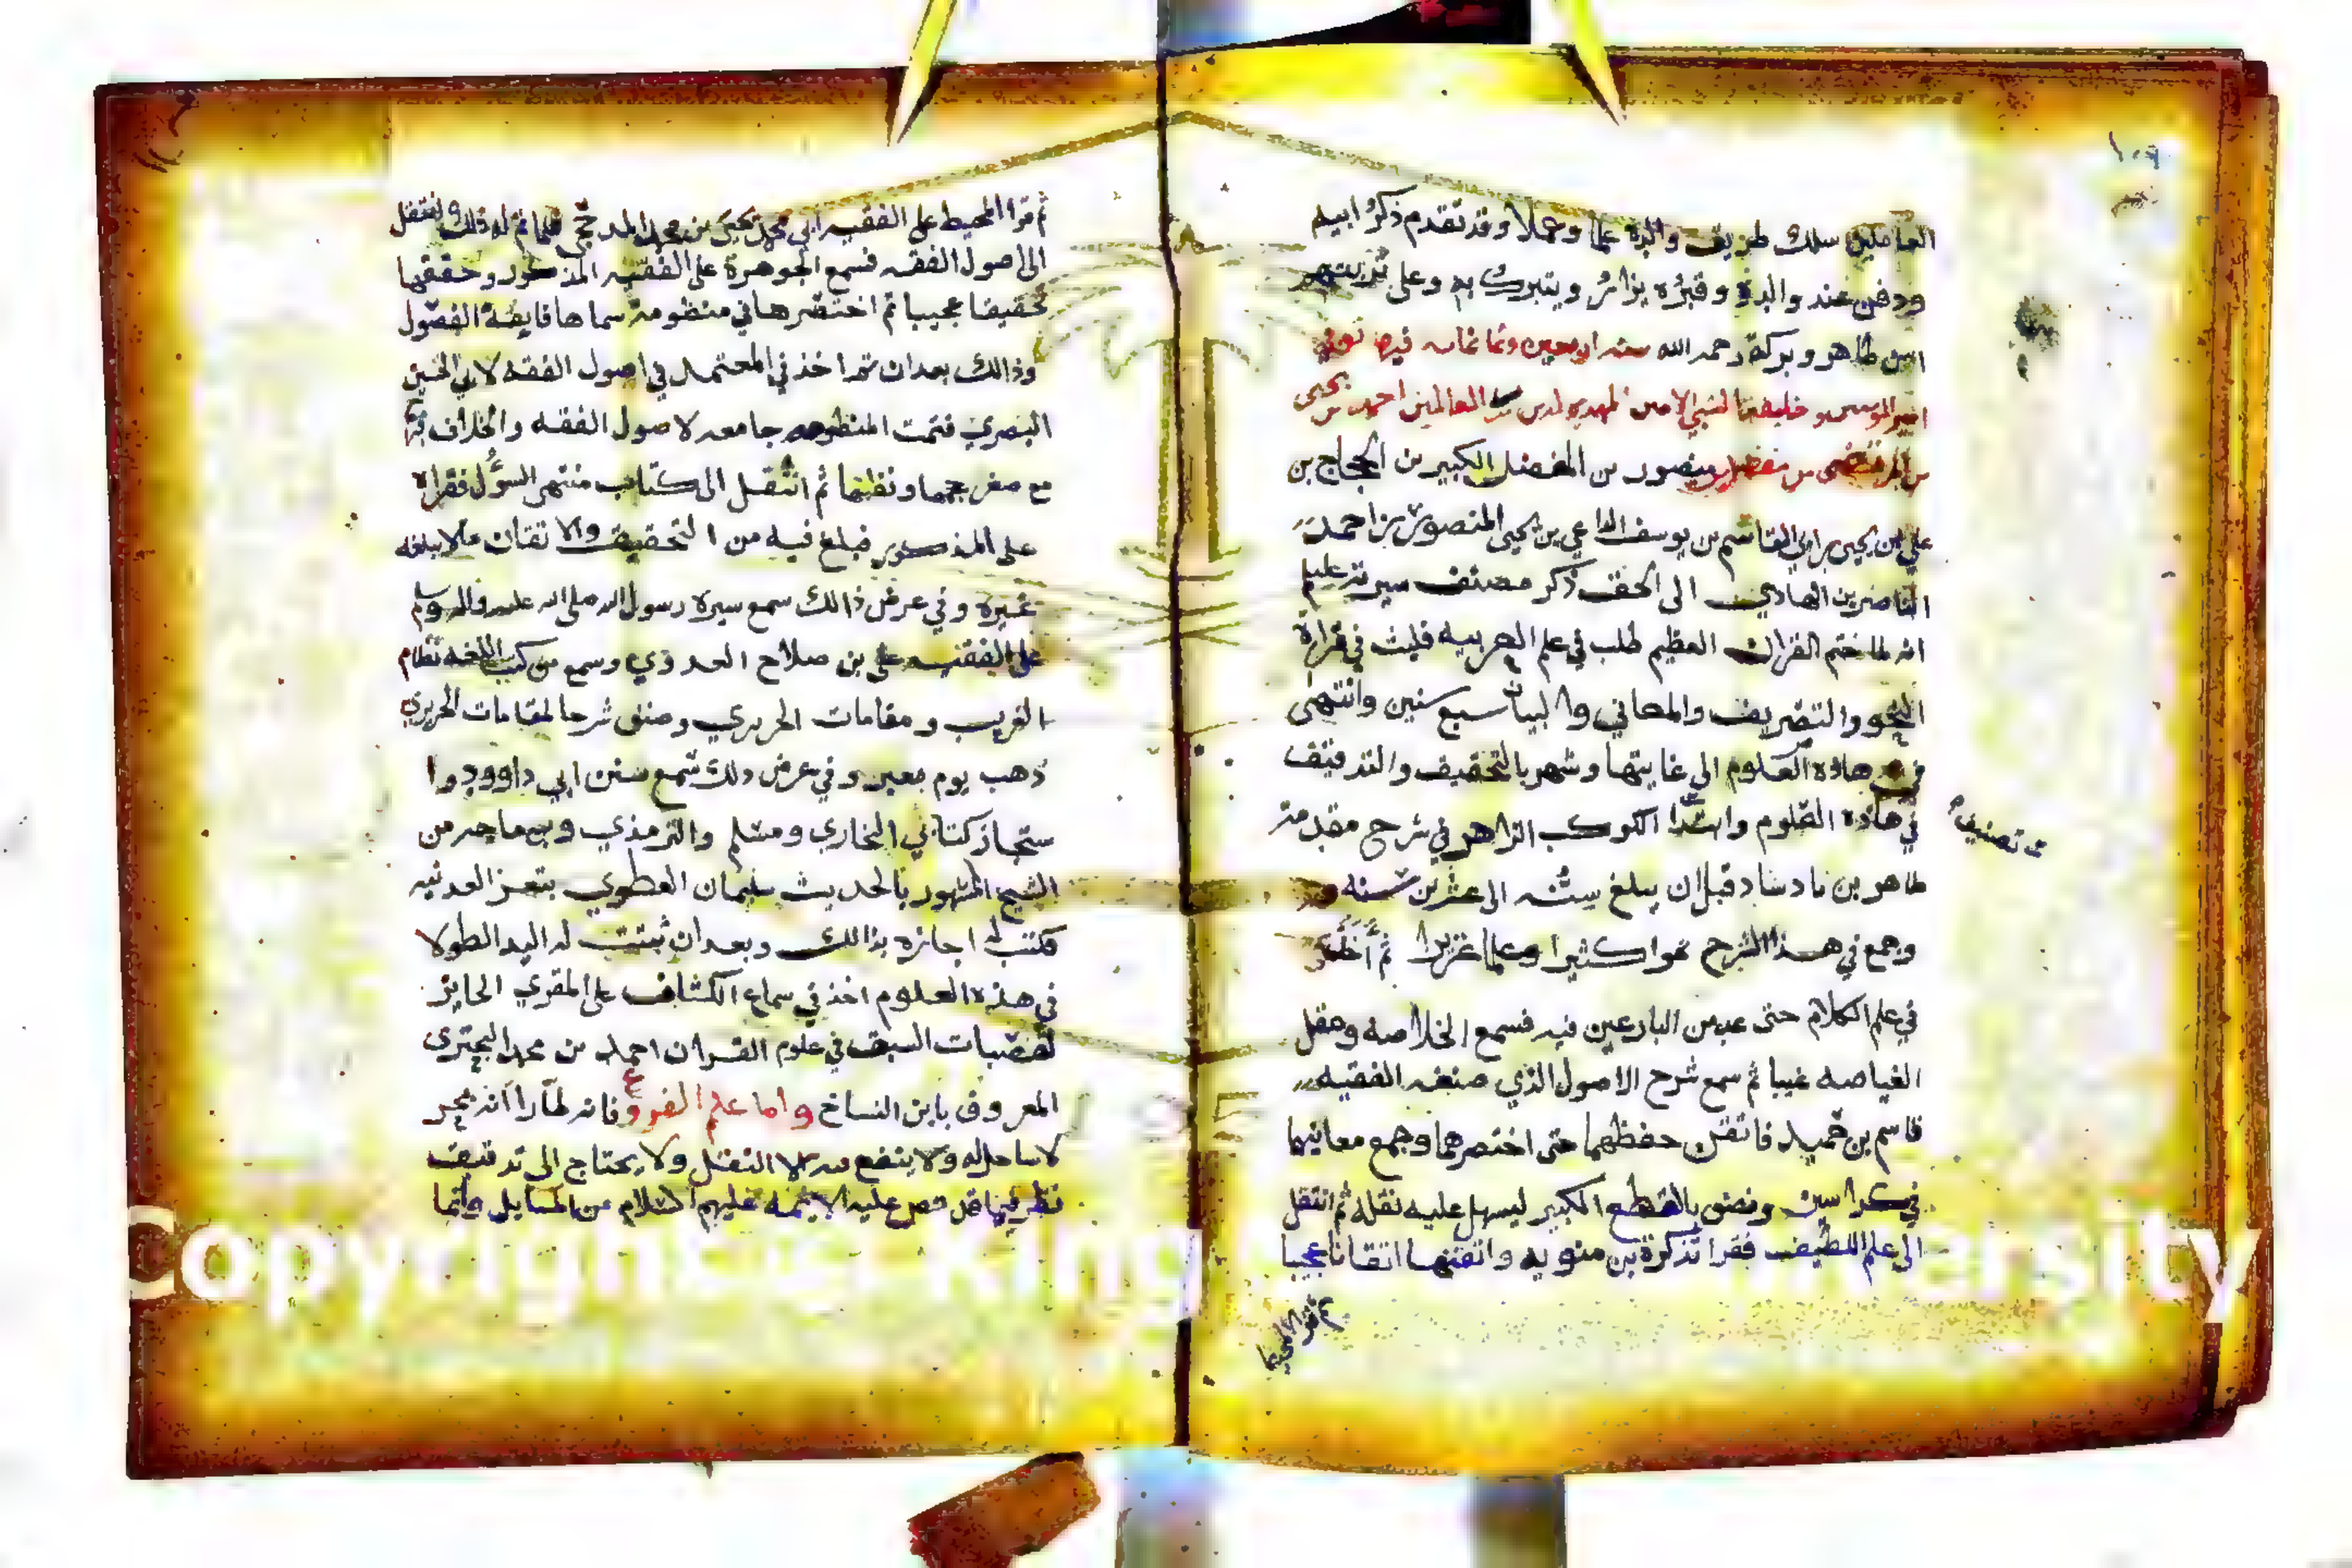 العاملين سلك طريق والده علما وعملا وقد تقدم ذكر ابيه
ودفن عند والده وقبره يزار ويتبرك به وعلى
طاهر وبركة رحمه الله سنه اربعين وثمانمائه فيها توفي
امير المومنين و خليفة النبي الامين المهدي لدين الله رب العالمين احمد بن يحيى
بن المرتضى بن مفضل بن منصور بن المفضل الكبير بن الحجاج بن
علي بن يحيى بن القاسم بن يوسف الداعي بن يحيى المنصور بن احمد
الناصر بن الهادي الى الحق ذكر مصنف سيرته عليلم
انه لما ختم القران العظيم طلب في علم العربيه فلبث في قراة
النحو والتصريف والمعاني والبيان سبع سنين وانتهى
في هاذه العلوم الى غايتها وشهر بالتحقيق والتدقيق
في هاذه العلوم وابتدا الكوكب الزاهر في شرح مقدمة
من تصنيفه
طاهر بن بادشاد قبل ان يبلغ سنه الى عشرين سنه
وجمع في هذا الشرح نحوا كثيرا وعلما غزيرا ثم أخذ
في علم الكلام حتى عد من البارعين فيه فسمع الخلاصه ونقل
الغياصه غيبا ثم سمع شرح الاصول الذي صنفه الفقيه
قاسم بن حميد فاتقن حفظهما حتى اختصرهما وجمع معانيهما
في كراسين ونصف بالقطع الكبير ليسهل عليه نقله ثم انتقل
الى علم اللطيف فقرا تذكرة بن متويه واتقنها اتقانا عجيبا
ثم قرا المحيط
ثم قرا المحيط على الفقيه ابي محمد يحيى بن محمد المدحجي فلما تم له ذلك انتقل
الى اصول الفقه فسمع الجوهرة على الفقيه المذكور وحققها
تحقيقا عجيبا ثم اختصرها في منظومة سماها فايقة الفصول
وذالك بعد ان اخذ في المعتمد في اصول الفقه لابي الحسين
البصري فتمت المنظومه جامعه لاصول الفقه والخلاف فيها
مع صغر حجمها ونظمها ثم انتقل الى كتاب منتهى السؤل فقراه
على المذكور فبلغ فيه من التحقيق والاتقان ما لا يبلغه
غيره وفي عرض ذالك سمع سيرة رسول الله صلى الله عليه واله وسلم
على الفقيه علي بن صلاح العدوي وسمع من كتب اللغه نظام
الغريب ومقامات الحريري وصنف شرحا لمقامات الحريري
ذهب يوم معبر وفي عرض ذلك سمع سنن ابي داوود وا
ستجاز كتابي البخاري ومسلم والترمذي وبن ماجه من
الشيخ المشهور بالحديث سليمان العطوي بتعز العدنيه
فكتب له اجازه بذالك وبعد ان ثبتت له اليد الطولا
في هذه العلوم اخذ في سماع الكشاف على المقري الحايز
لقصبات السبق في علوم القران احمد بن محمد البحتري
المعروف بابن النساخ واما علم الفروع فانه لما راا انه بحر
لا ساحل له ولا ينفع فيه الا النقل ولا يحتاج الى تدقيق
نظر فيما قد نص عليه الايمه عليهم السلام من المسايل وانما